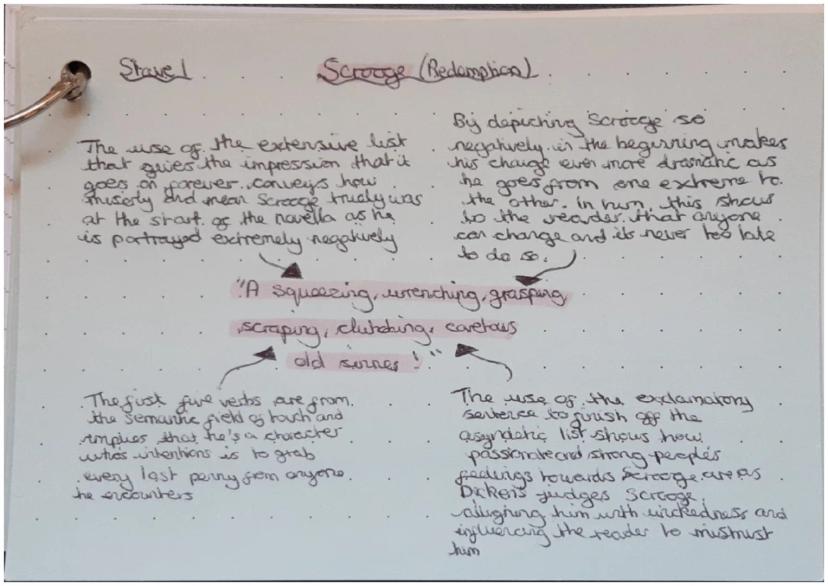 Stave 1
Scrooge (Redemption)
The use of the extensive list
that gives the impression that it
goes on forever conveys how
miserly and mean Scrooge truely was
at the start of the novella as he
is portrayed extremely negatively
By depicting Scrooge so
negatively in the beginning makes
his change even more dramatic as
he goes from one extreme to
the other. In turn, this shows
to the reader that anyone
can change and its never too late
to do so.
"A squeezing, wrenching, grasping,
scraping, clutching, covetous
old sinner!"
The first five verbs are from
the semantic field of touch and
implies that he's a character
who's intentions is to grab
every last penny from anyone
he encounters
The use of the exclamatory
sentence to finish off the
asyndatic list shows how
passionate and strong people's
feelings towards Scrooge are as
Dickens judges Scrooge,
alligning him with wickedness and
influencing the reader to mistrust
him